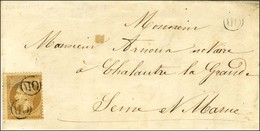 Monsieur
Monsieur Arnoua notaire
à Chalautre la Grande
Seine et Marne
OIO
OIO